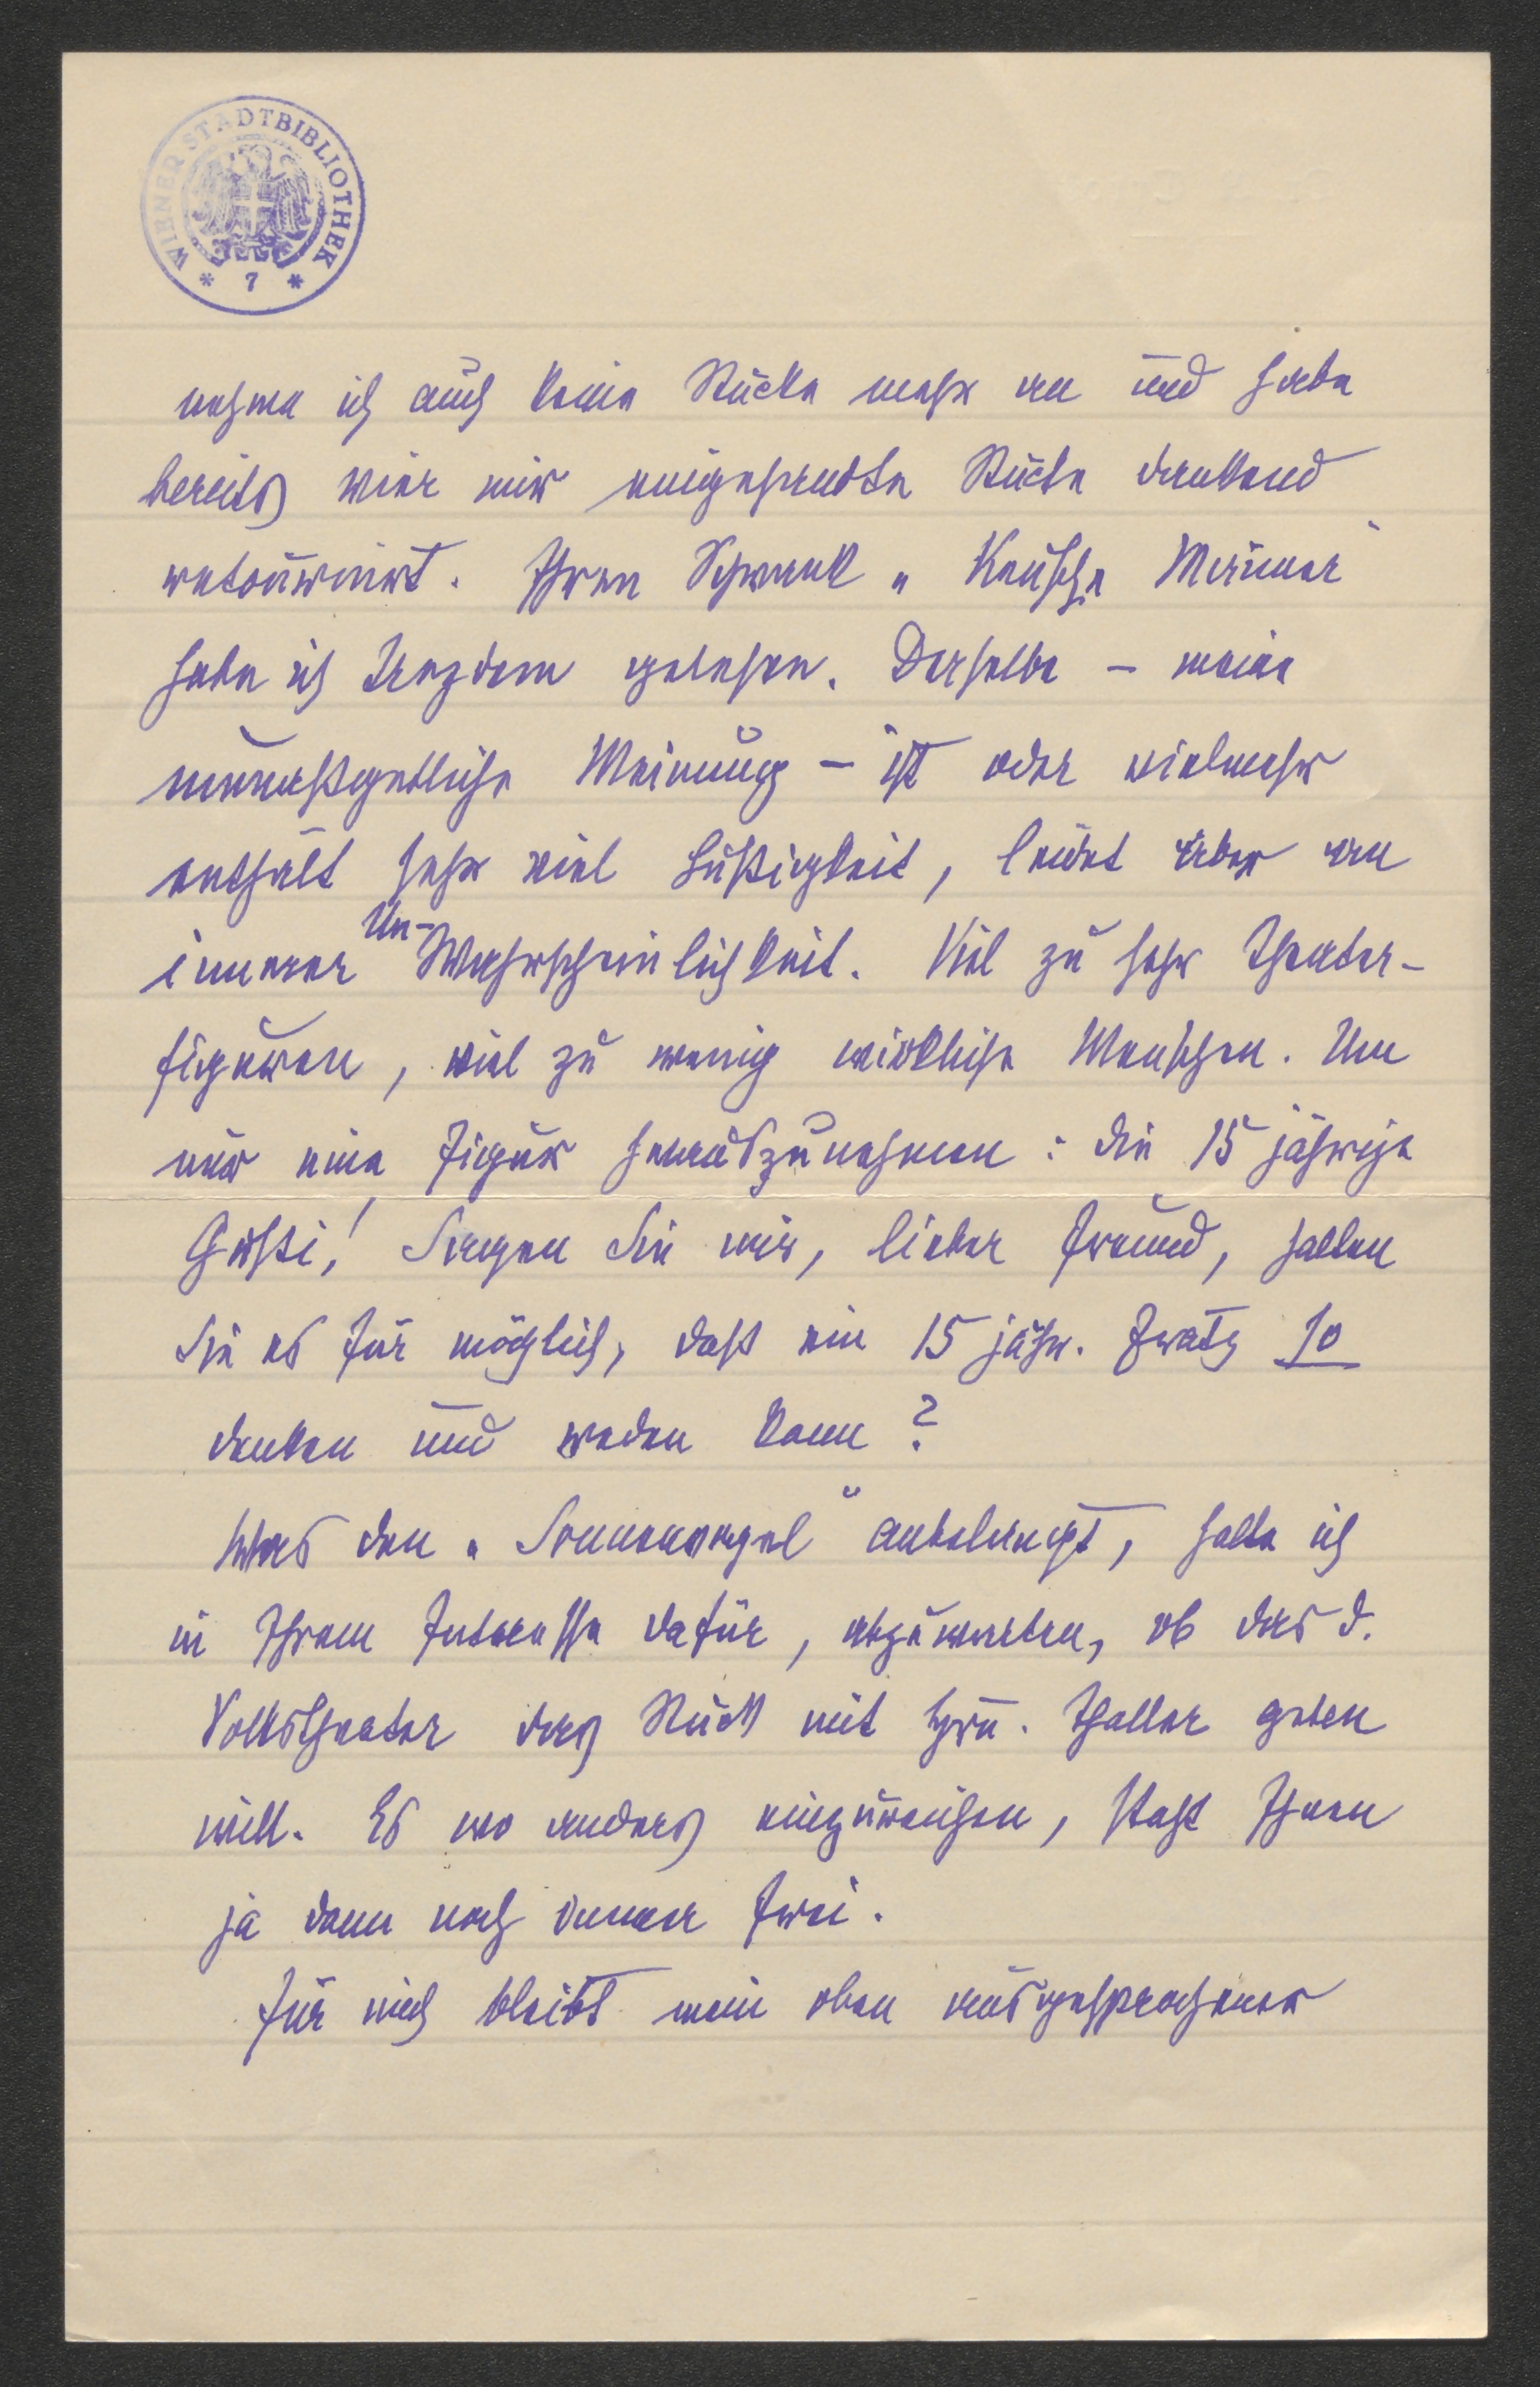 WIENER STADTBIBLIOTHEK
* 7 *
nehme ich auch keine Stücke mehr an und habe
bereits vier mir eingesandte Stücke dankend
retourniert. Ihren Schwank „Keusche Männer"
habe ich trozdem gelesen. Derselbe – meine
unmaßgebliche Meinung – ist oder vielmehr
enthält sehr viel Lustigkeit, leidet aber an
innerer Un-Wahrscheinlichkeit. Viel zu sehr Theater-
figuren, viel zu wenig wirkliche Menschen. Um
nur eine Figur herauszunehmen: die 15 jährige
Gusti! Sagen Sie mir, lieber Freund, halten
Sie es für möglich, daß ein 15 jähr. Fratz so
denken und reden kann?
Was den „Sonnenvogel" anbelangt, halte ich
in Ihrem Interesse dafür, abzuwarten, ob das d.
Volkstheater das Stück mit Hrn. Thaller geben
will. Es wo anders einzureichen, steht Ihnen
ja dann noch immer frei.
Für mich bleibt mein oben ausgesprochener